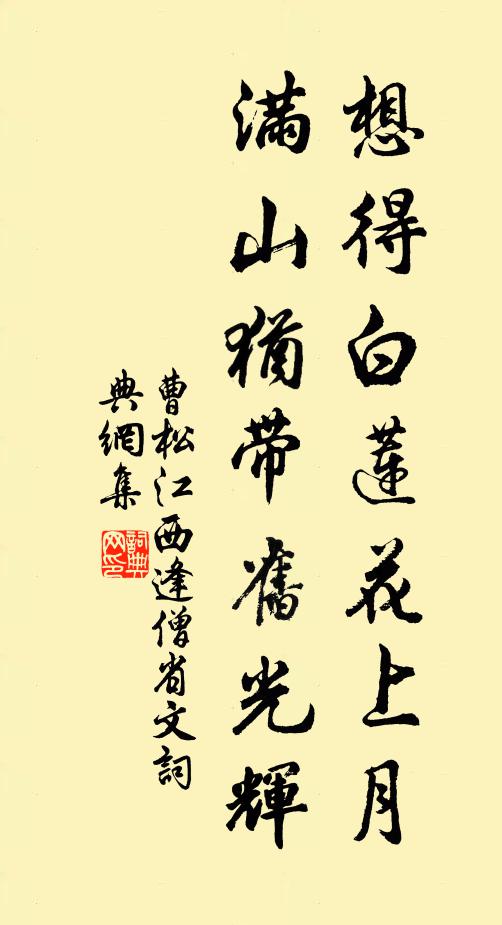 想得白蓮花上月
滿山猶帶舊光輝
曹松江西逢僧省文詞
典網集
詞典
网印